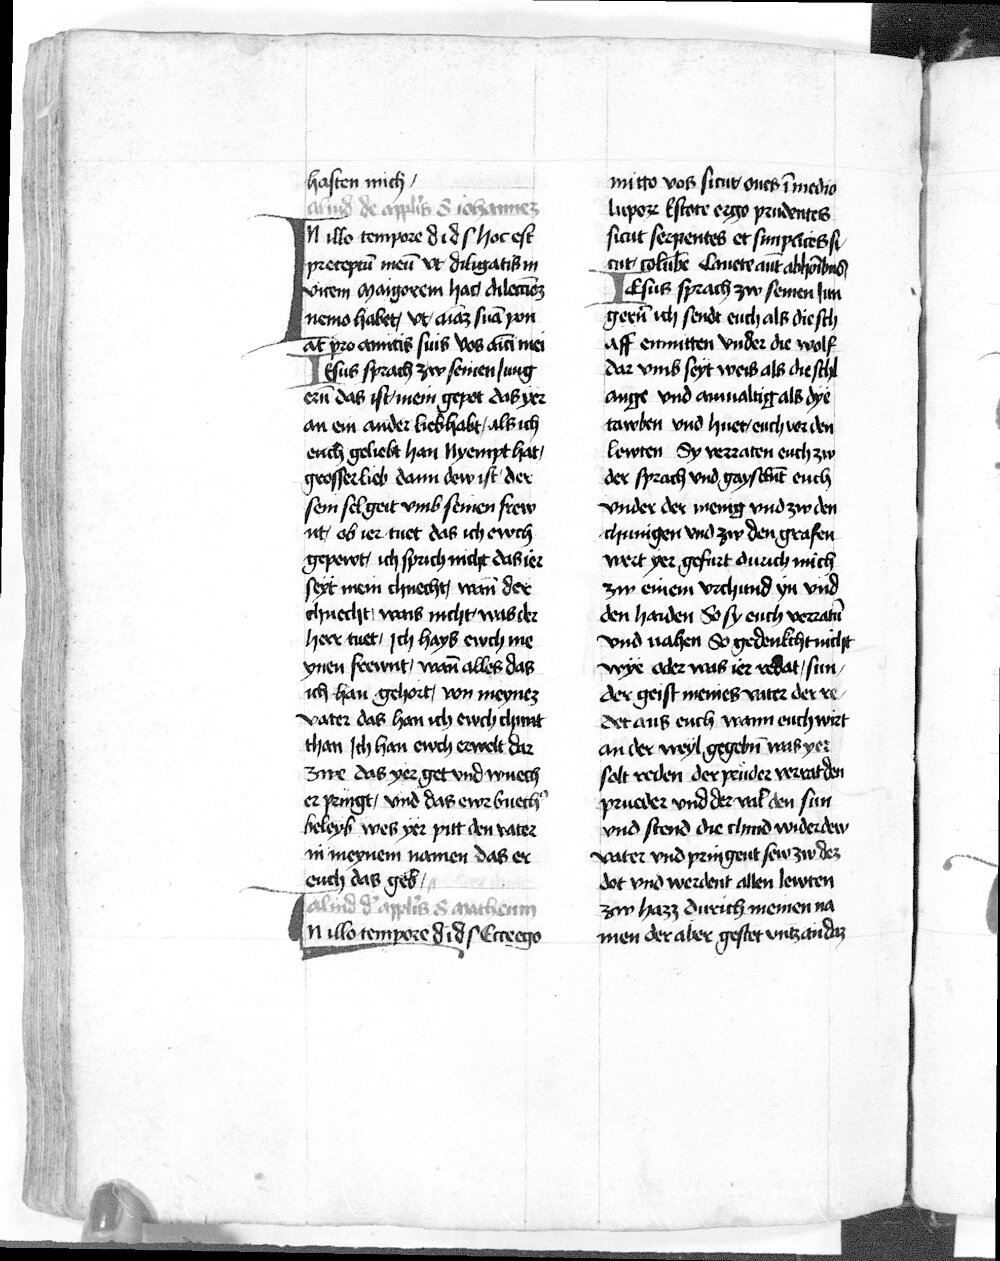 hasten mich /
aliud de appl'is S iohannez
IN illo tempore d i d s hoc est
preceptū meū vt diligatis in
vicem Maigorem hac dilectōz
nemo habet / vt aiāz suā pon
at pro amicis suis vos am̄ci mei
IEsus sprach zw seinen Jung
erñ das ist / mein gepot das yer
an ein ander liebhabt / als ich
euch geliebt han Nyempt hat /
grosser lieb dann dew ist / der
sein sel geit vmb seinen frew
nt / ob ier tuet das ich ewch
gepewt / ich sprich nicht das ier
seyt mein chnecht / wañ der
chnecht / wais nicht / was der
herr tuet / Ich hays ewch me
ynen frewnt / wañ alles das
ich han gehort / von meynez
vater das han ich ewch chunt
than Ich han ewch erwelt dar
zwe das yer get vnd wuech
er pringt / vnd das ewr buech
beleyb wes yer pitt den vater
in meynem namen das er
euch das geb /
aliud d' appl'is S matheum
IN illo tempore d i d s Ecce ego
mitto vos sicut oues ī medio
lupoꝝ Estote ergo prudentes
sicut serpentes et simplices si
cut / colūbe Cauete aūt ab hōibus
IEsus sprach zw seinen Jun
gerñ ich sendt euch als die sch
aff enmitten vnder die wolf
dar vmb seyt weis als die schl
ange vnd ainualtig als dye
tawben vnd huet / euch vor den
lewten Sy verraten euch zw
der sprach vnd gayschñt euch
vnder der menig vnd zw den
chunigen vnd zw den grafen
wert yer gefurt durich mich
zw einem vrchund yn vnd
den haiden So sy euch verratñ
vnd vahen So gedenkcht nicht
wye oder was ier redat / sun /
der geist meines vater der re /
det aus euch wann euch wirt
an der weyl gegebñ was yer
solt reden der prüder verrat den
prueder vnd der vat' den sun
vnd stend die chind wider dew
vater vnd pringent sew zw dez
dot vnd werdent allen lewten
zw hazz durich meinen na
men der aber gestet vntz an daz